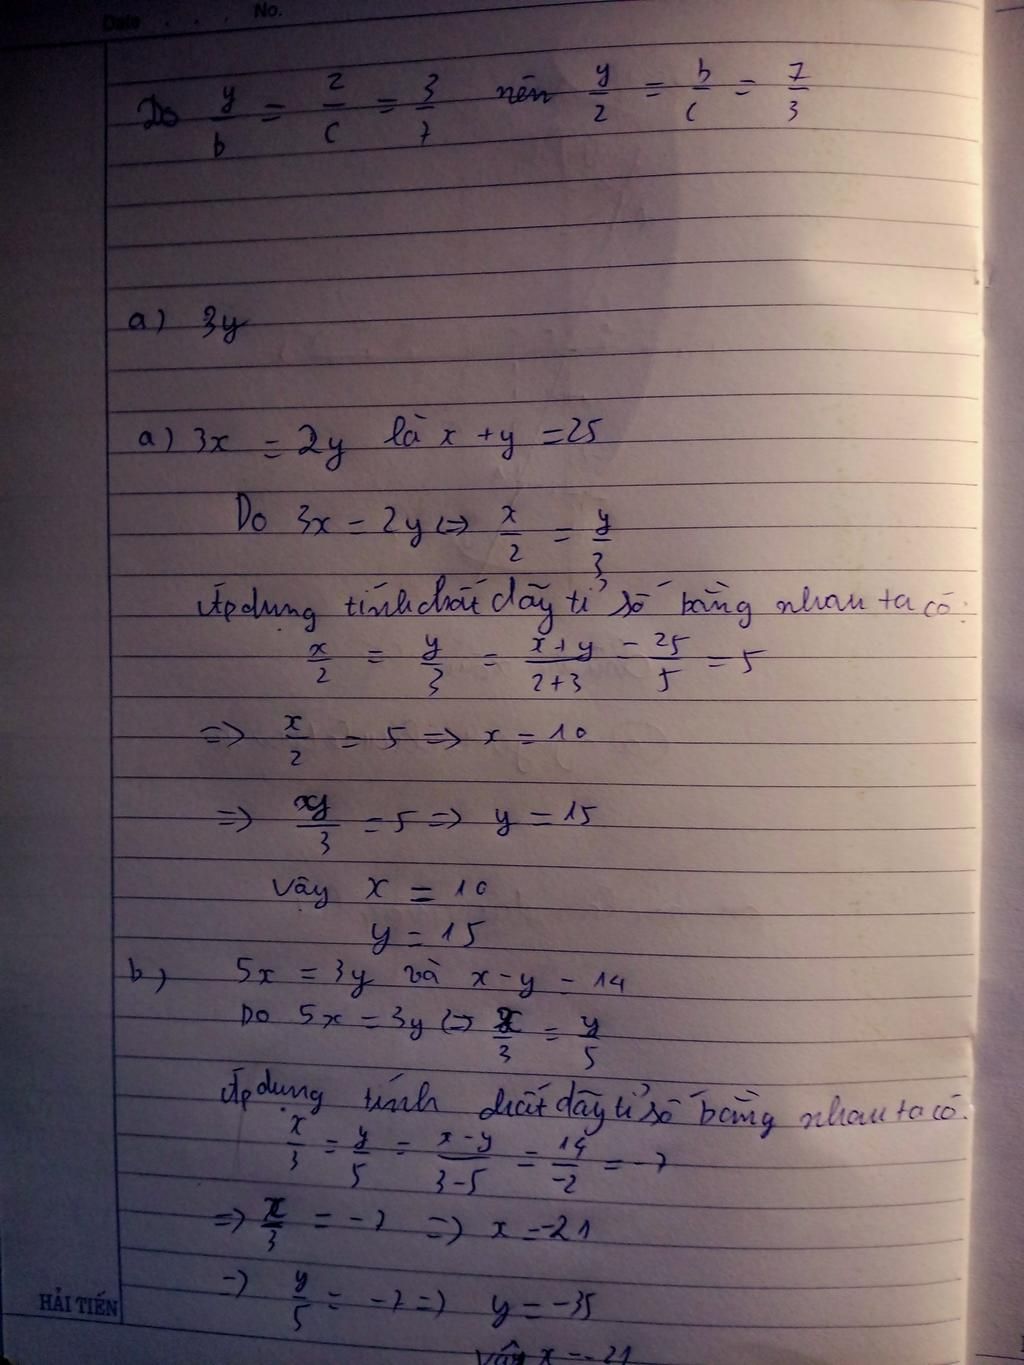 Date . . . . No.
Do y/b = 2/c = 3/7 nên y/2 = b/c = 7/3
a) 3y
a) 3x = 2y là x + y = 25
Do 3x = 2y <=> x/2 = y/3
Áp dụng tính chất dãy tỉ số bằng nhau ta có:
x/2 = y/3 = x+y/2+3 = 25/5 = 5
=> x/2 = 5 => x = 10
=> y/3 = 5 => y = 15
Vậy x = 10
y = 15
b) 5x = 3y và x - y = 14
Do 5x = 3y <=> x/3 = y/5
Áp dụng tính chất dãy tỉ số bằng nhau ta có.
x/3 = y/5 = x-y/3-5 = 14/-2 = -7
=> x/3 = -7 => x = -21
=> y/5 = -7 => y = -35
Vậy x = -21
HẢI TIẾN